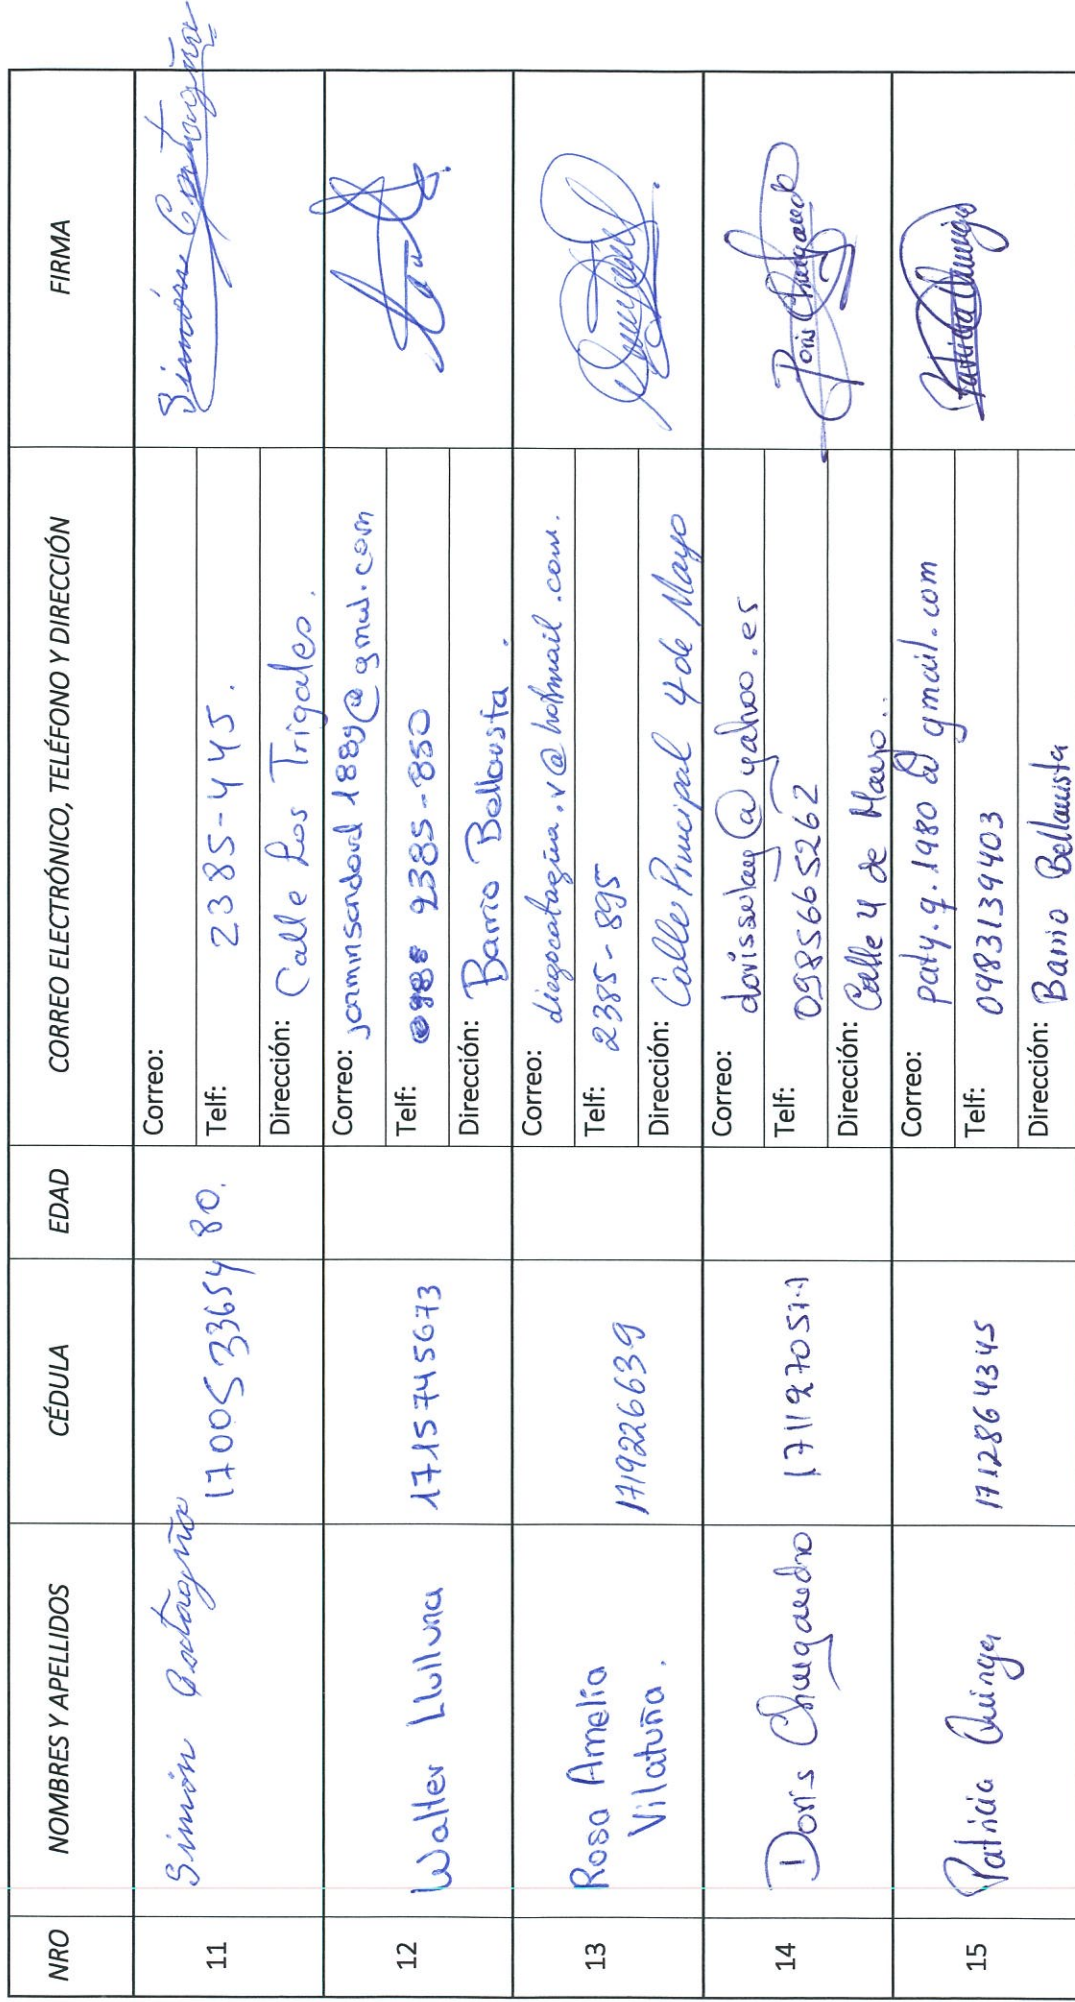 NRO NOMBRES Y APELLIDOS CÉDULA EDAD CORREO ELECTRÓNICO, TELÉFONO Y DIRECCIÓN FIRMA
11 Simón Cataña 1700533654 80.
Correo:
Telf: 2385-445.
Dirección: Calle Los Trigales.
Simón
12 Walter Llulluna 1715745673
Correo: jazminsandoval1889@gmail.com
Telf: 2385-850
Dirección: Barrio Bellavista.
13 Rosa Amelia
Vilatuña.
1719226639
Correo: diegocatagña.v@hotmail.com.
Telf: 2385-895
Dirección: Calle Principal 4 de Mayo
14 Doris
Correo:
Telf: 0985665262
Dirección: Calle 4 de Mayo..
Doris
15 Patricia Quinga 1712864345
Correo: paty.q.1980@gmail.com
Telf: 0983139403
Dirección: Barrio Bellavista
Patricia Quinga